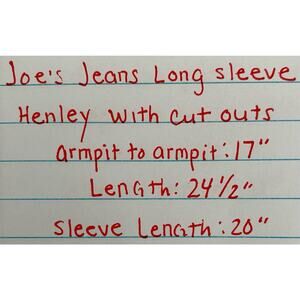 Joe's Jeans Long sleeve
Henley with cut outs
armpit to armpit: 17"
Length: 24 1/2"
sleeve Length: 20"